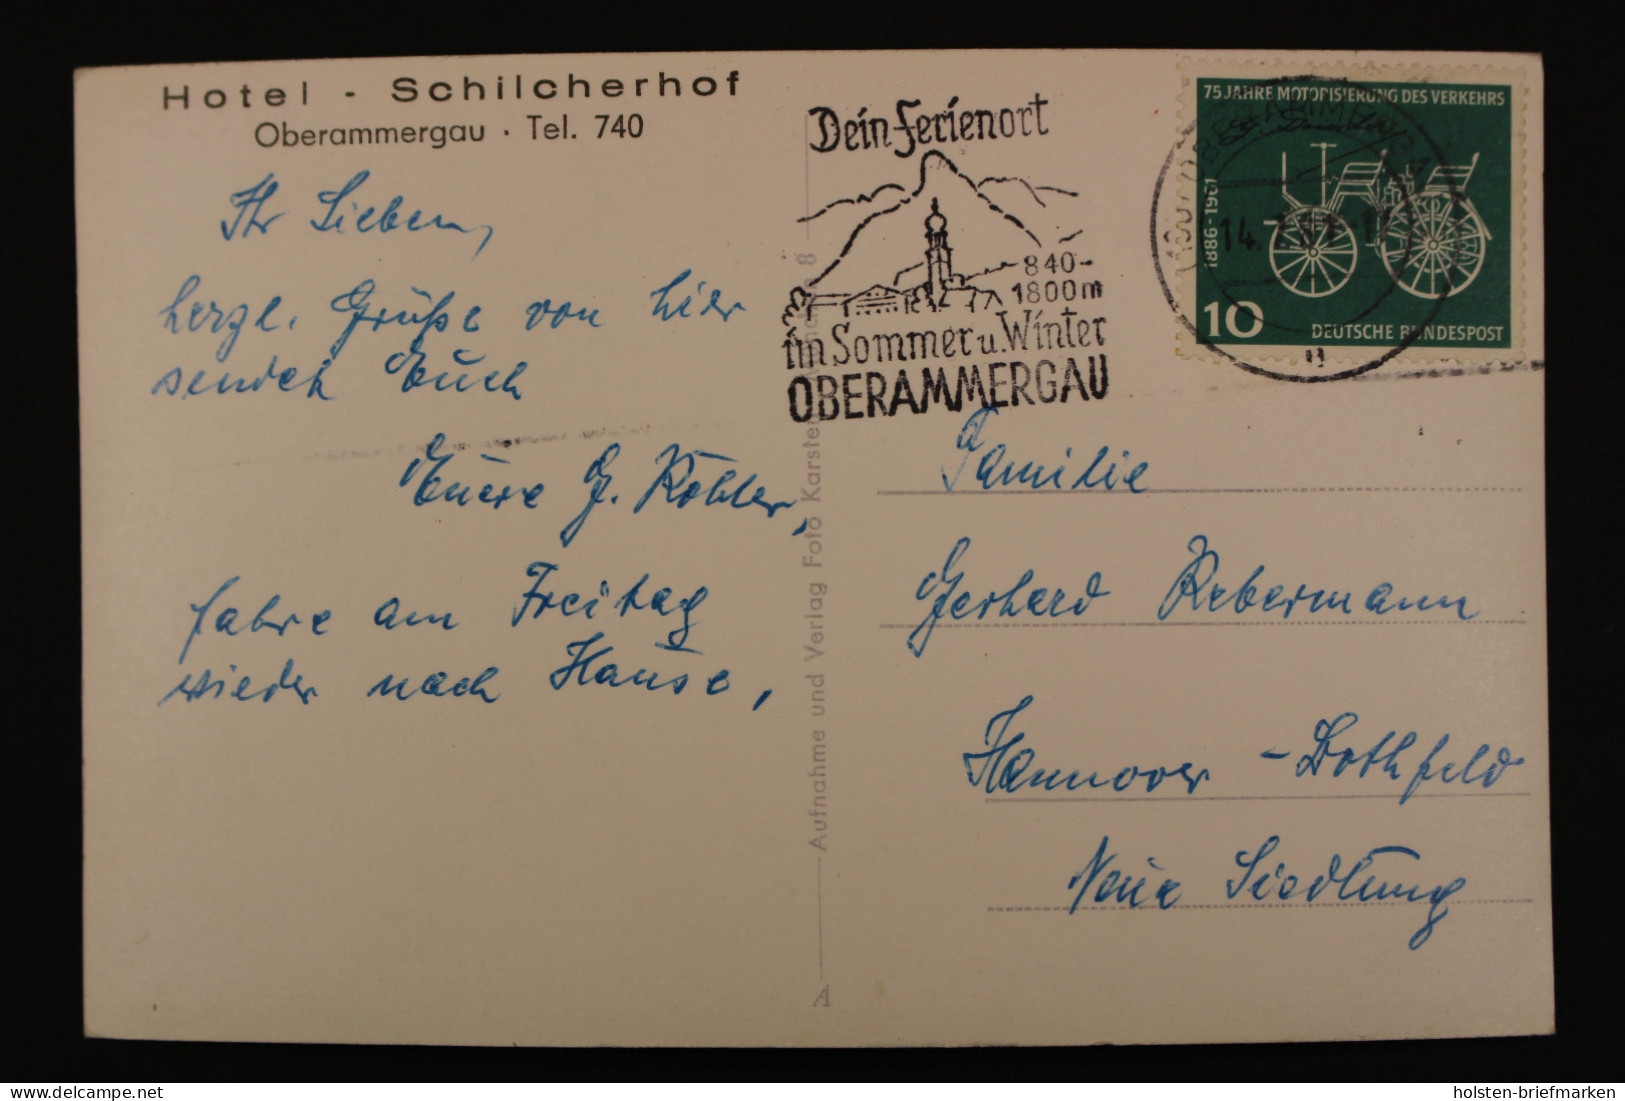 Hotel - Schilcherhof
Oberammergau · Tel. 740
Ihr Lieben,
herzl. Grüße von hier
sendet Euch
Euere G. Köhler,
fahre am Freitag
wieder nach Hause,
Aufnahme und Verlag Foto Karsten 8
A
Dein Ferienort
840-
1800m
im Sommer u. Winter
OBERAMMERGAU
OBERAMMERGAU
14.
75 JAHRE MOTORISIERUNG DES VERKEHRS
1886-1961
10 DEUTSCHE BUNDESPOST
Familie
Gerhard Rebermann
Hannover - Bothfeld
Neue Siedlung
holsten-briefmarken